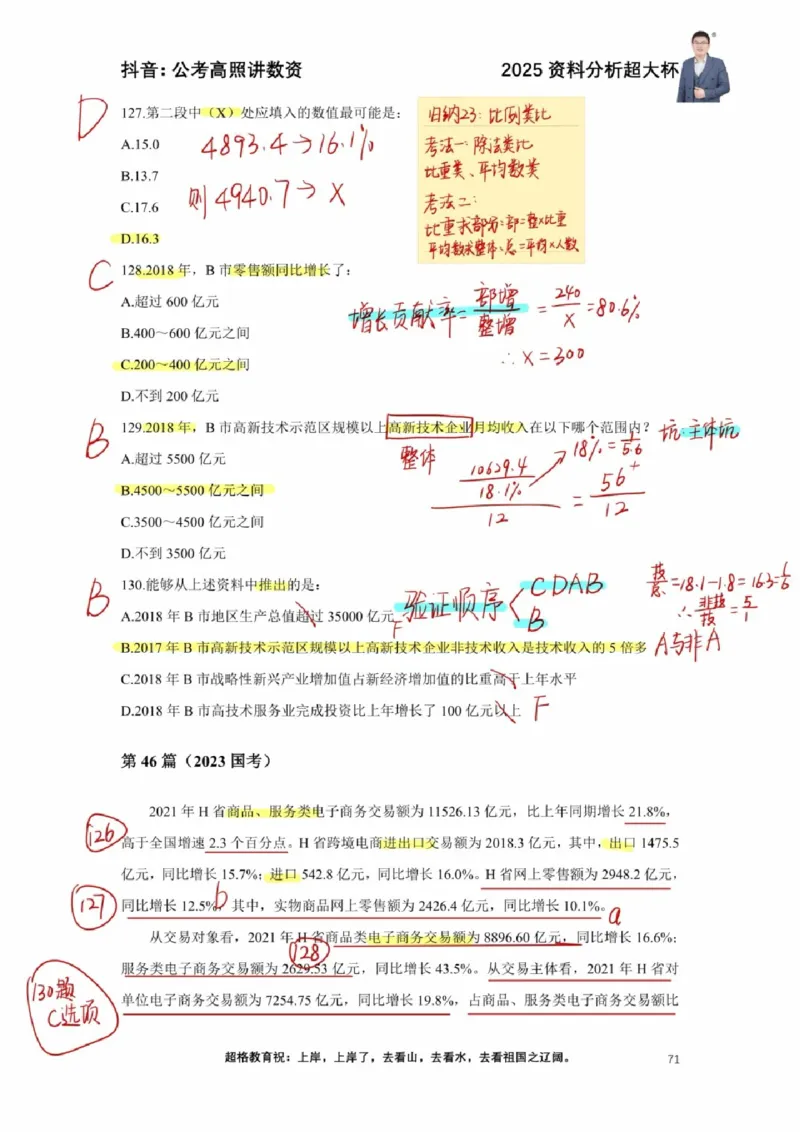 抖音：公考高照讲数资 2025 资料分析超大杯
D 127.第二段中（X）处应填入的数值最可能是：
A.15.0 4893.4→16.1%
B.13.7
C.17.6 则4940.7→X
D.16.3
归纳23：比例类比
考法一：除法类比
比重类、平均数类
考法二：
比重求部分：部=整×比重
平均数求整体：总=平均×人数
C 128.2018 年，B 市零售额同比增长了：
A.超过 600 亿元
B.400～600 亿元之间
C.200～400 亿元之间
D.不到 200 亿元
增长贡献率=部增/整增=240/X=80.6%
∴X=300
B 129.2018 年，B 市高新技术示范区规模以上高新技术企业月均收入在以下哪个范围内？ 坑：主体坑
A.超过 5500 亿元 整体
B.4500～5500 亿元之间
C.3500～4500 亿元之间
D.不到 3500 亿元
10629.4
18.1%
12
18%=1/5.6
=56+/12
B 130.能够从上述资料中推出的是：
A.2018 年 B 市地区生产总值超过 35000 亿元 F
验证顺序 CDAB
B
技/总=18.1-1.8=16.3=1/6
∴非技/技=5/1
B.2017 年 B 市高新技术示范区规模以上高新技术企业非技术收入是技术收入的 5 倍多 A与非A
C.2018 年 B 市战略性新兴产业增加值占新经济增加值的比重高于上年水平
D.2018 年 B 市高技术服务业完成投资比上年增长了 100 亿元以上 F
第 46 篇（2023 国考）
2021 年 H 省商品、服务类电子商务交易额为 11526.13 亿元，比上年同期增长 21.8%，
126 高于全国增速 2.3 个百分点。H 省跨境电商进出口交易额为 2018.3 亿元，其中，出口 1475.5
亿元，同比增长 15.7%；进口 542.8 亿元，同比增长 16.0%。H 省网上零售额为 2948.2 亿元，
127 同比增长 12.5%，b 其中，实物商品网上零售额为 2426.4 亿元，同比增长 10.1%。a
从交易对象看，2021 年 H 省商品类电子商务交易额为 8896.60 亿元，同比增长 16.6%；
128
服务类电子商务交易额为 2629.53 亿元，同比增长 43.5%。从交易主体看，2021 年 H 省对
130题
C选项
单位电子商务交易额为 7254.75 亿元，同比增长 19.8%，占商品、服务类电子商务交易额比
超格教育祝：上岸，上岸了，去看山，去看水，去看祖国之辽阔。 71